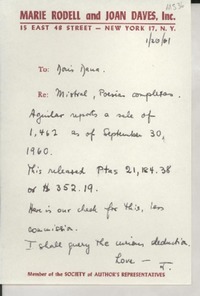 MARIE RODELL and JOAN DAVES, Inc.
15 EAST 48 STREET — NEW YORK 17, N. Y.
1/20/61
To: Doris Dana.
Re: Mistral, Poesias completas.
Aguilar reports a sale of
1,462 as of September 30,
1960.
This released Ptas 21,124.38
or $ 352.19.
Here is our check for this, less
commission.
I shall query the various deductions.
Love —
Member of the SOCIETY of AUTHOR'S REPRESENTATIVES